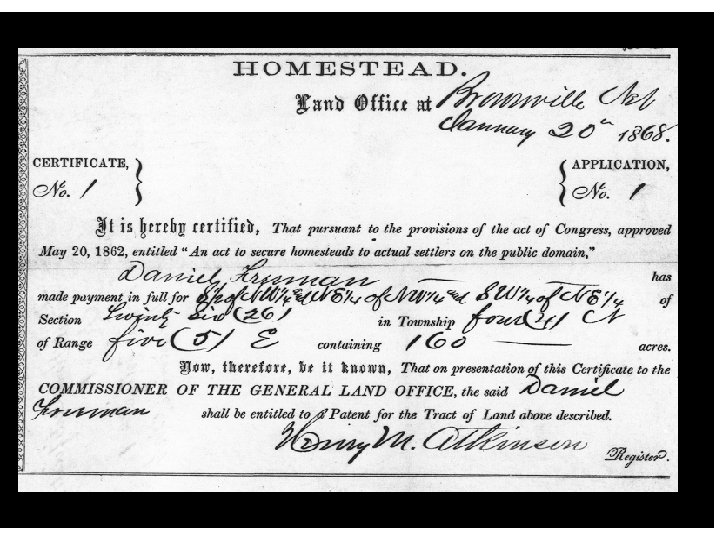 HOMESTEAD.
Land Office at Brownville Neb
January 20th 1868.
CERTIFICATE, APPLICATION,
No. 1 No. 1
It is hereby certified, That pursuant to the provisions of the act of Congress, approved
May 20, 1862, entitled "An act to secure homesteads to actual settlers on the public domain,"
Daniel Freeman has
made payment in full for S½ of NW¼ & NE¼ of NW¼ and SW¼ of NE¼ of
Section Twenty Six (26) in Township four (4) N
of Range five (5) E containing 160 acres.
Now, therefore, be it known, That on presentation of this Certificate to the
COMMISSIONER OF THE GENERAL LAND OFFICE, the said Daniel
Freeman shall be entitled to a Patent for the Tract of Land above described.
Henry M. Atkinson
Register.